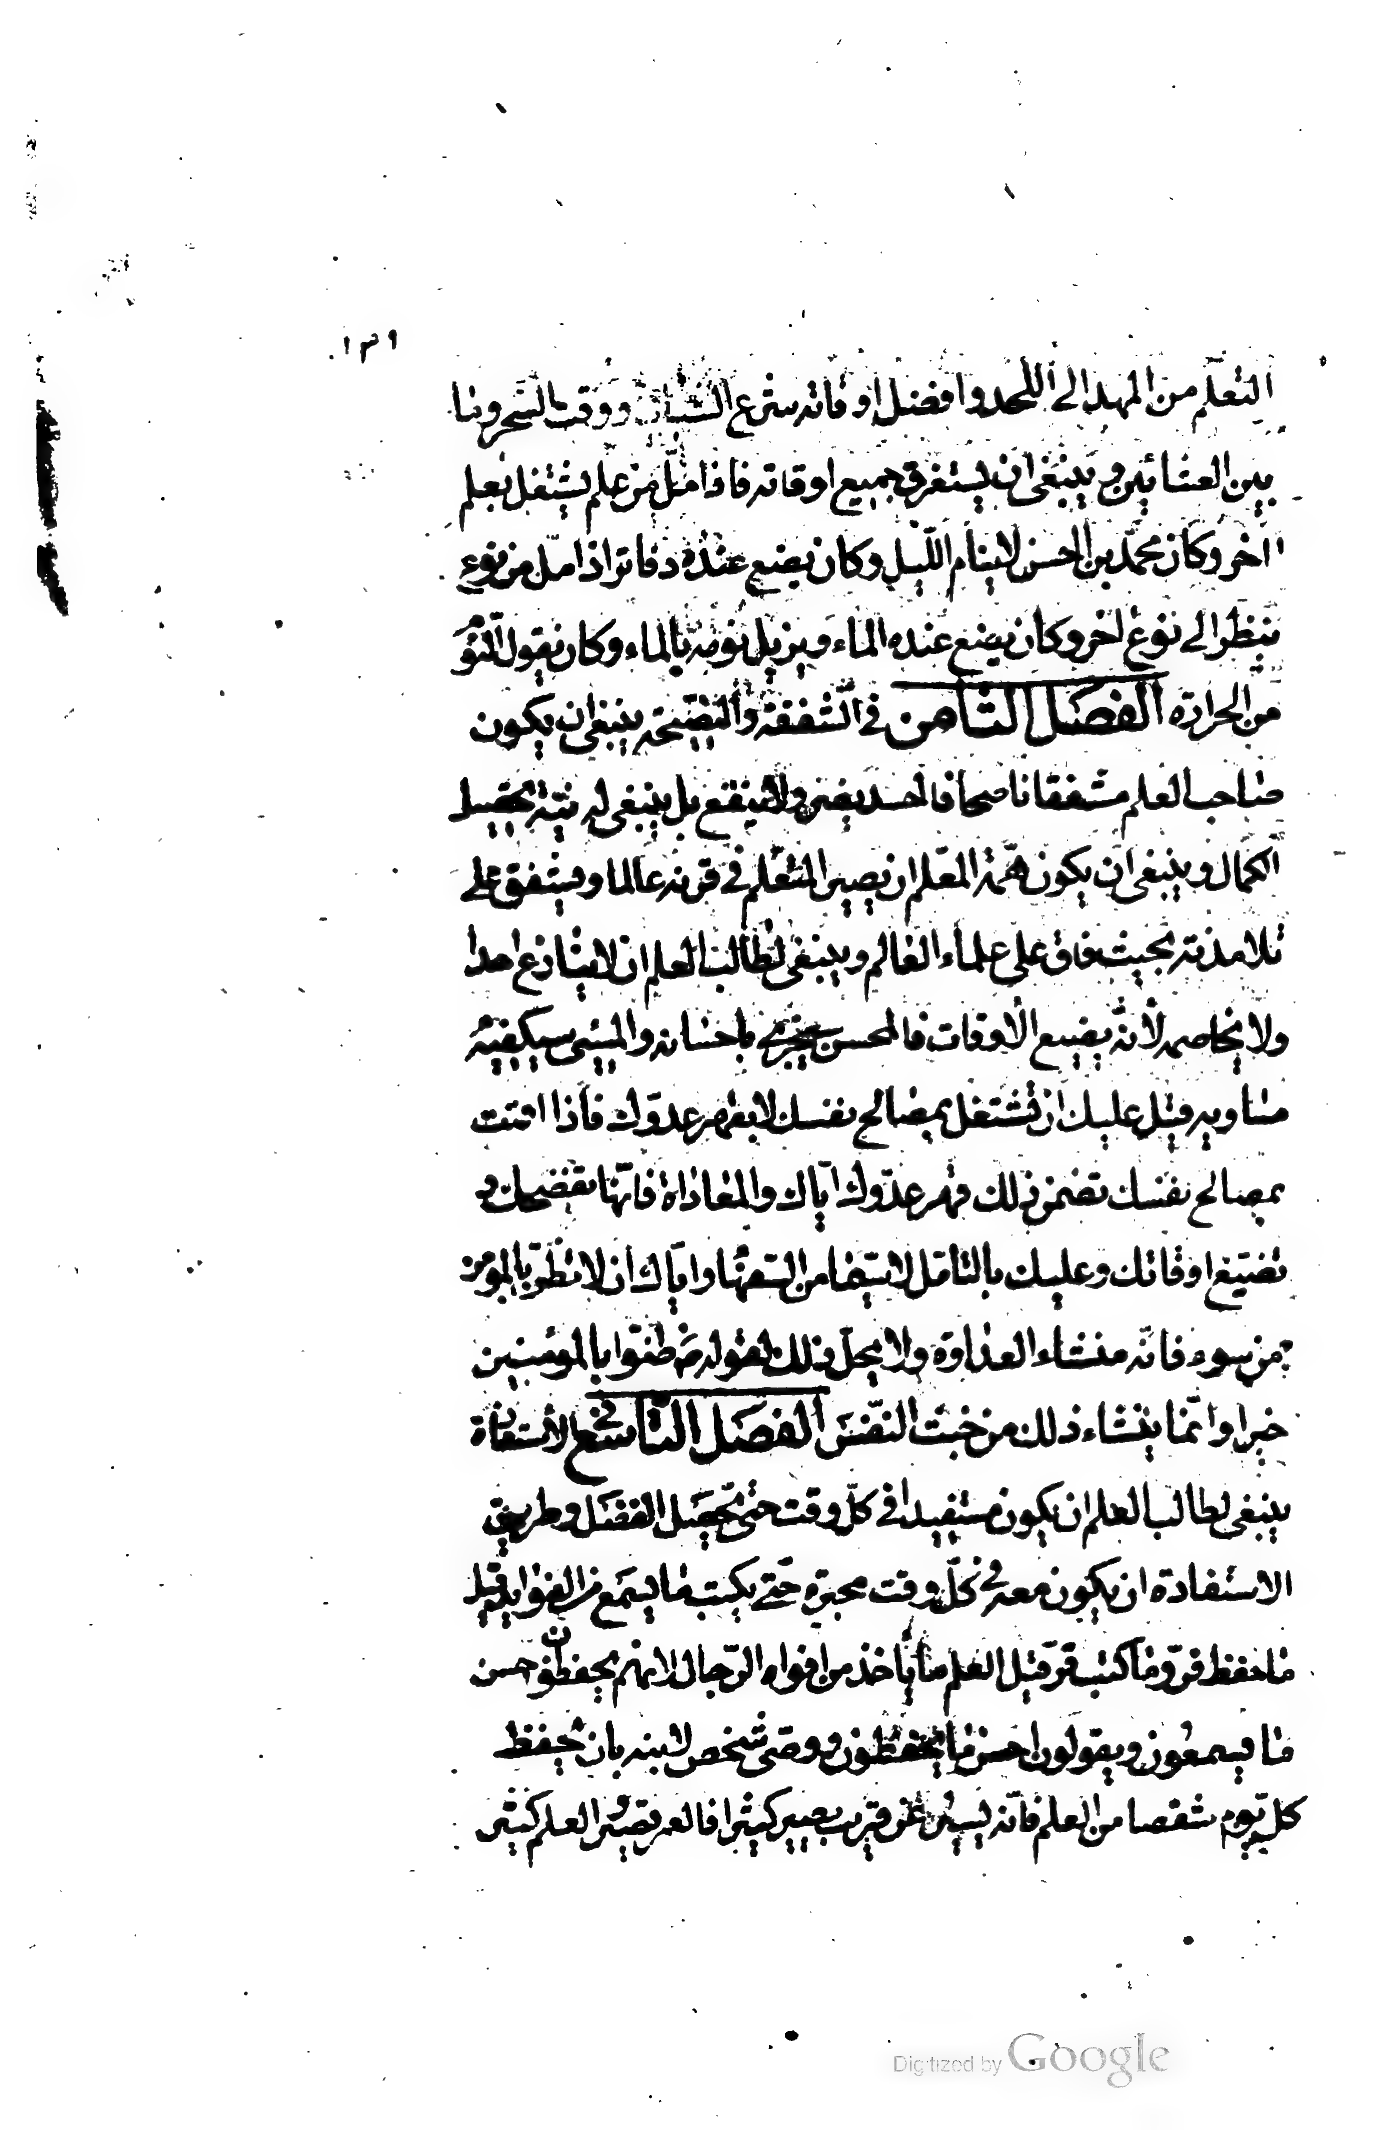 ١٣٩
التعلّم من المهد الى اللحد وافضل اوقاته شرع الشباب ووقت السّحر وما
بين العشائين وينبغى ان يستغرق جميع اوقاته فاذا ملّ من علم يشتغل بعلم
آخر وكان محمّد بن الحسن لا ينام اللّيل وكان يضع عنده دفاتر اذا ملّ من نوع
ينظر الى نوع اخر وكان يضع عنده الماء ويزيل نومه بالماء وكان يقول النّوم
من الحرارة الفصل الثامن في الشفقة والنصيحة ينبغى ان يكون
صاحب العلم مشفقا ناصحا فالحسد يضر ولا ينفع بل ينبغى له نيّة تحصيل
الكمال وينبغى ان يكون همّة المعّلم ان يصير المتعّلم في قرنه عالما ويشفق على
تلامذته بحيث فاق على علماء العالم وينبغى لطالب العلم ان لا ينازع احدا
ولا يخاصمه لأنّه يضيع الاوقات فالمحسن سيجزى باحسانه والمسيئ سيكفيه
مساويه قيل عليك ان تشتغل بمصالح نفسك لا بقهر عدوّك فاذا اقمت
بمصالح نفسك تضمن ذلك قهر عدّوك ايّاك والمعاداة فانّها تفضحك و
تضيّع اوقاتك وعليك بالتأمّل لا سيّما من السفهاء وايّاك ان لا تظنّ بالمؤمن
من سوء فانّه منشاء العداوة ولا يحلّ ذلك لقوله ص ظنّوا بالمؤمنين
خيرا وانّما ينشاء ذلك من خبث النّفس الفصل التاسع في الأستفادة
ينبغى لطالب العلم ان يكون مستفيدا في كلّ وقت حتى يحصل الفضل وطريق
الاستفادة ان يكون معه في كلّ وقت محبرة حتّى يكتب ما يسمع من الفوايد قيل
ما حفظ فرّ وما كتب قرّ قيل العلم ما يأخذ من افواه الرّجال لانهم يحفظون احسن
ما يسمعون ويقولون احسن ما يحفظون ووصّى شخص لابنه بان يحفظ
كل يوم شقصا من العلم فانّه يسير عن قريب يصير كثيرا فالعمر قصير والعلم كثير
Digitized by Google